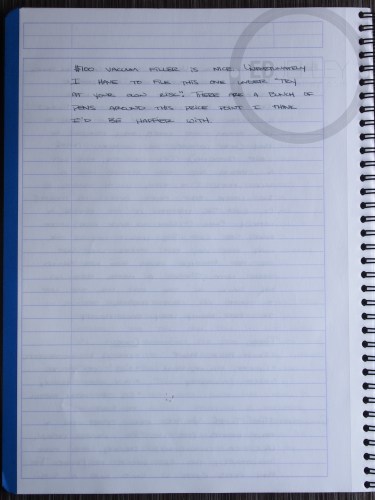 $100 vacuum filler is nice. Unfortunately
I have to file this one under "try
at your own risk". There are a bunch of
pens around this price point I think
I'd be happier with.